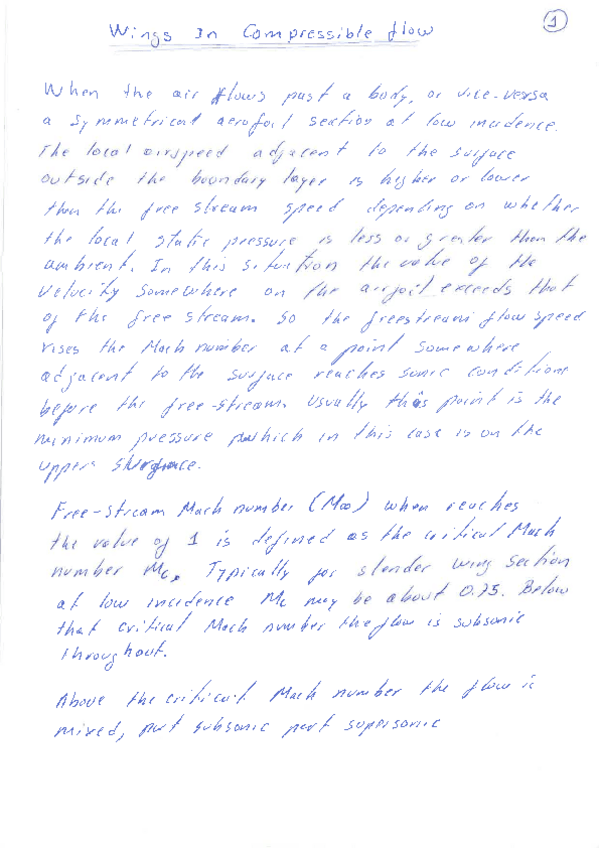 Wings In Compressible flow
1
When the air flows past a body, or vice-versa
a symmetrical aerofoil section at low incidence.
The local airspeed adjacent to the surface
outside the boundary layer is higher or lower
than the free stream speed depending on whether
the local static pressure is less or greater than the
ambient. In this situation the value of the
velocity somewhere on the airfoil exceeds that
of the free stream. So the freestream flow speed
rises the Mach number at a point somewhere
adjacent to the surface reaches sonic conditions
before the free-stream. Usually this point is the
minimum pressure which in this case is on the
upper surface.
Free-Stream Mach number (M∞) when reaches
the value of 1 is defined as the critical Mach
number Mc. Typically for slender wing section
at low incidence Mc may be about 0.75. Below
that critical Mach number the flow is subsonic
throughout.
Above the critical Mach number the flow is
mixed, part subsonic part supersonic